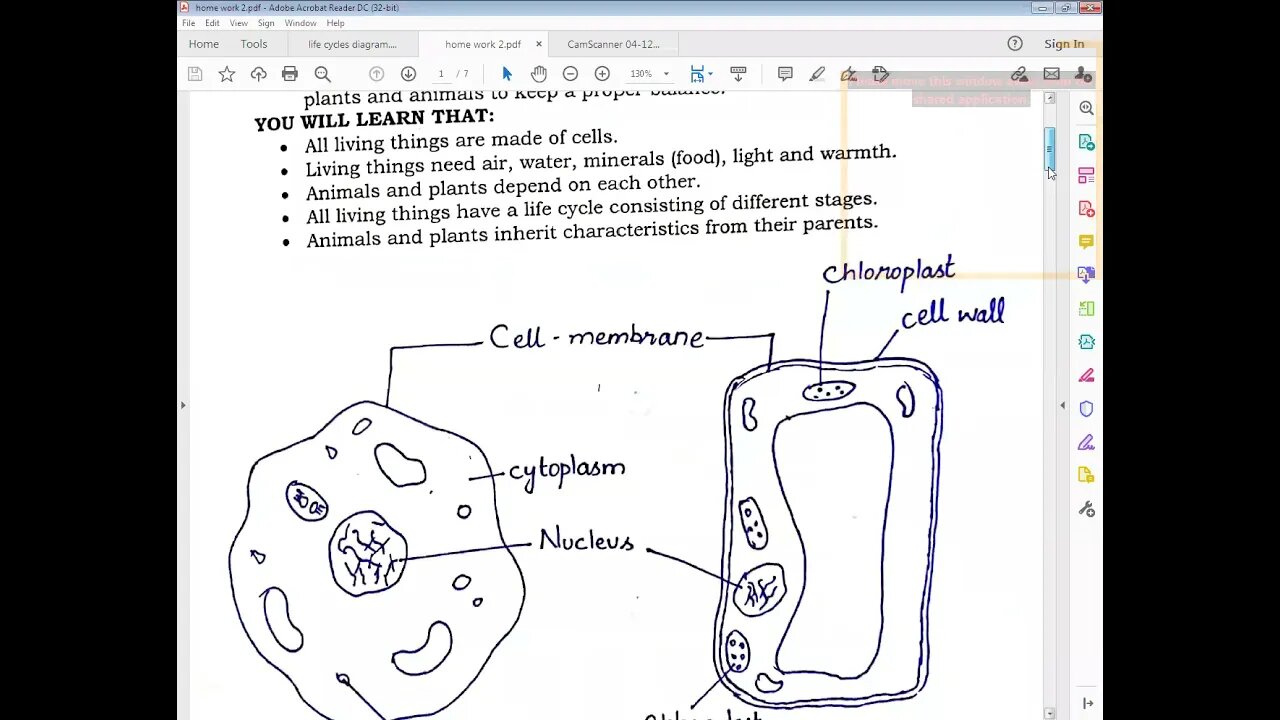 home work 2.pdf - Adobe Acrobat Reader DC (32-bit)
File Edit View Sign Window Help
Home Tools life cycles diagram.... home work 2.pdf × CamScanner 04-12... Sign In
1 / 7 130%
Please move this window
shared application.
plants and animals to keep a proper balance.
YOU WILL LEARN THAT:
• All living things are made of cells.
• Living things need air, water, minerals (food), light and warmth.
• Animals and plants depend on each other.
• All living things have a life cycle consisting of different stages.
• Animals and plants inherit characteristics from their parents.
chloroplast
cell wall
Cell - membrane
cytoplasm
Nucleus